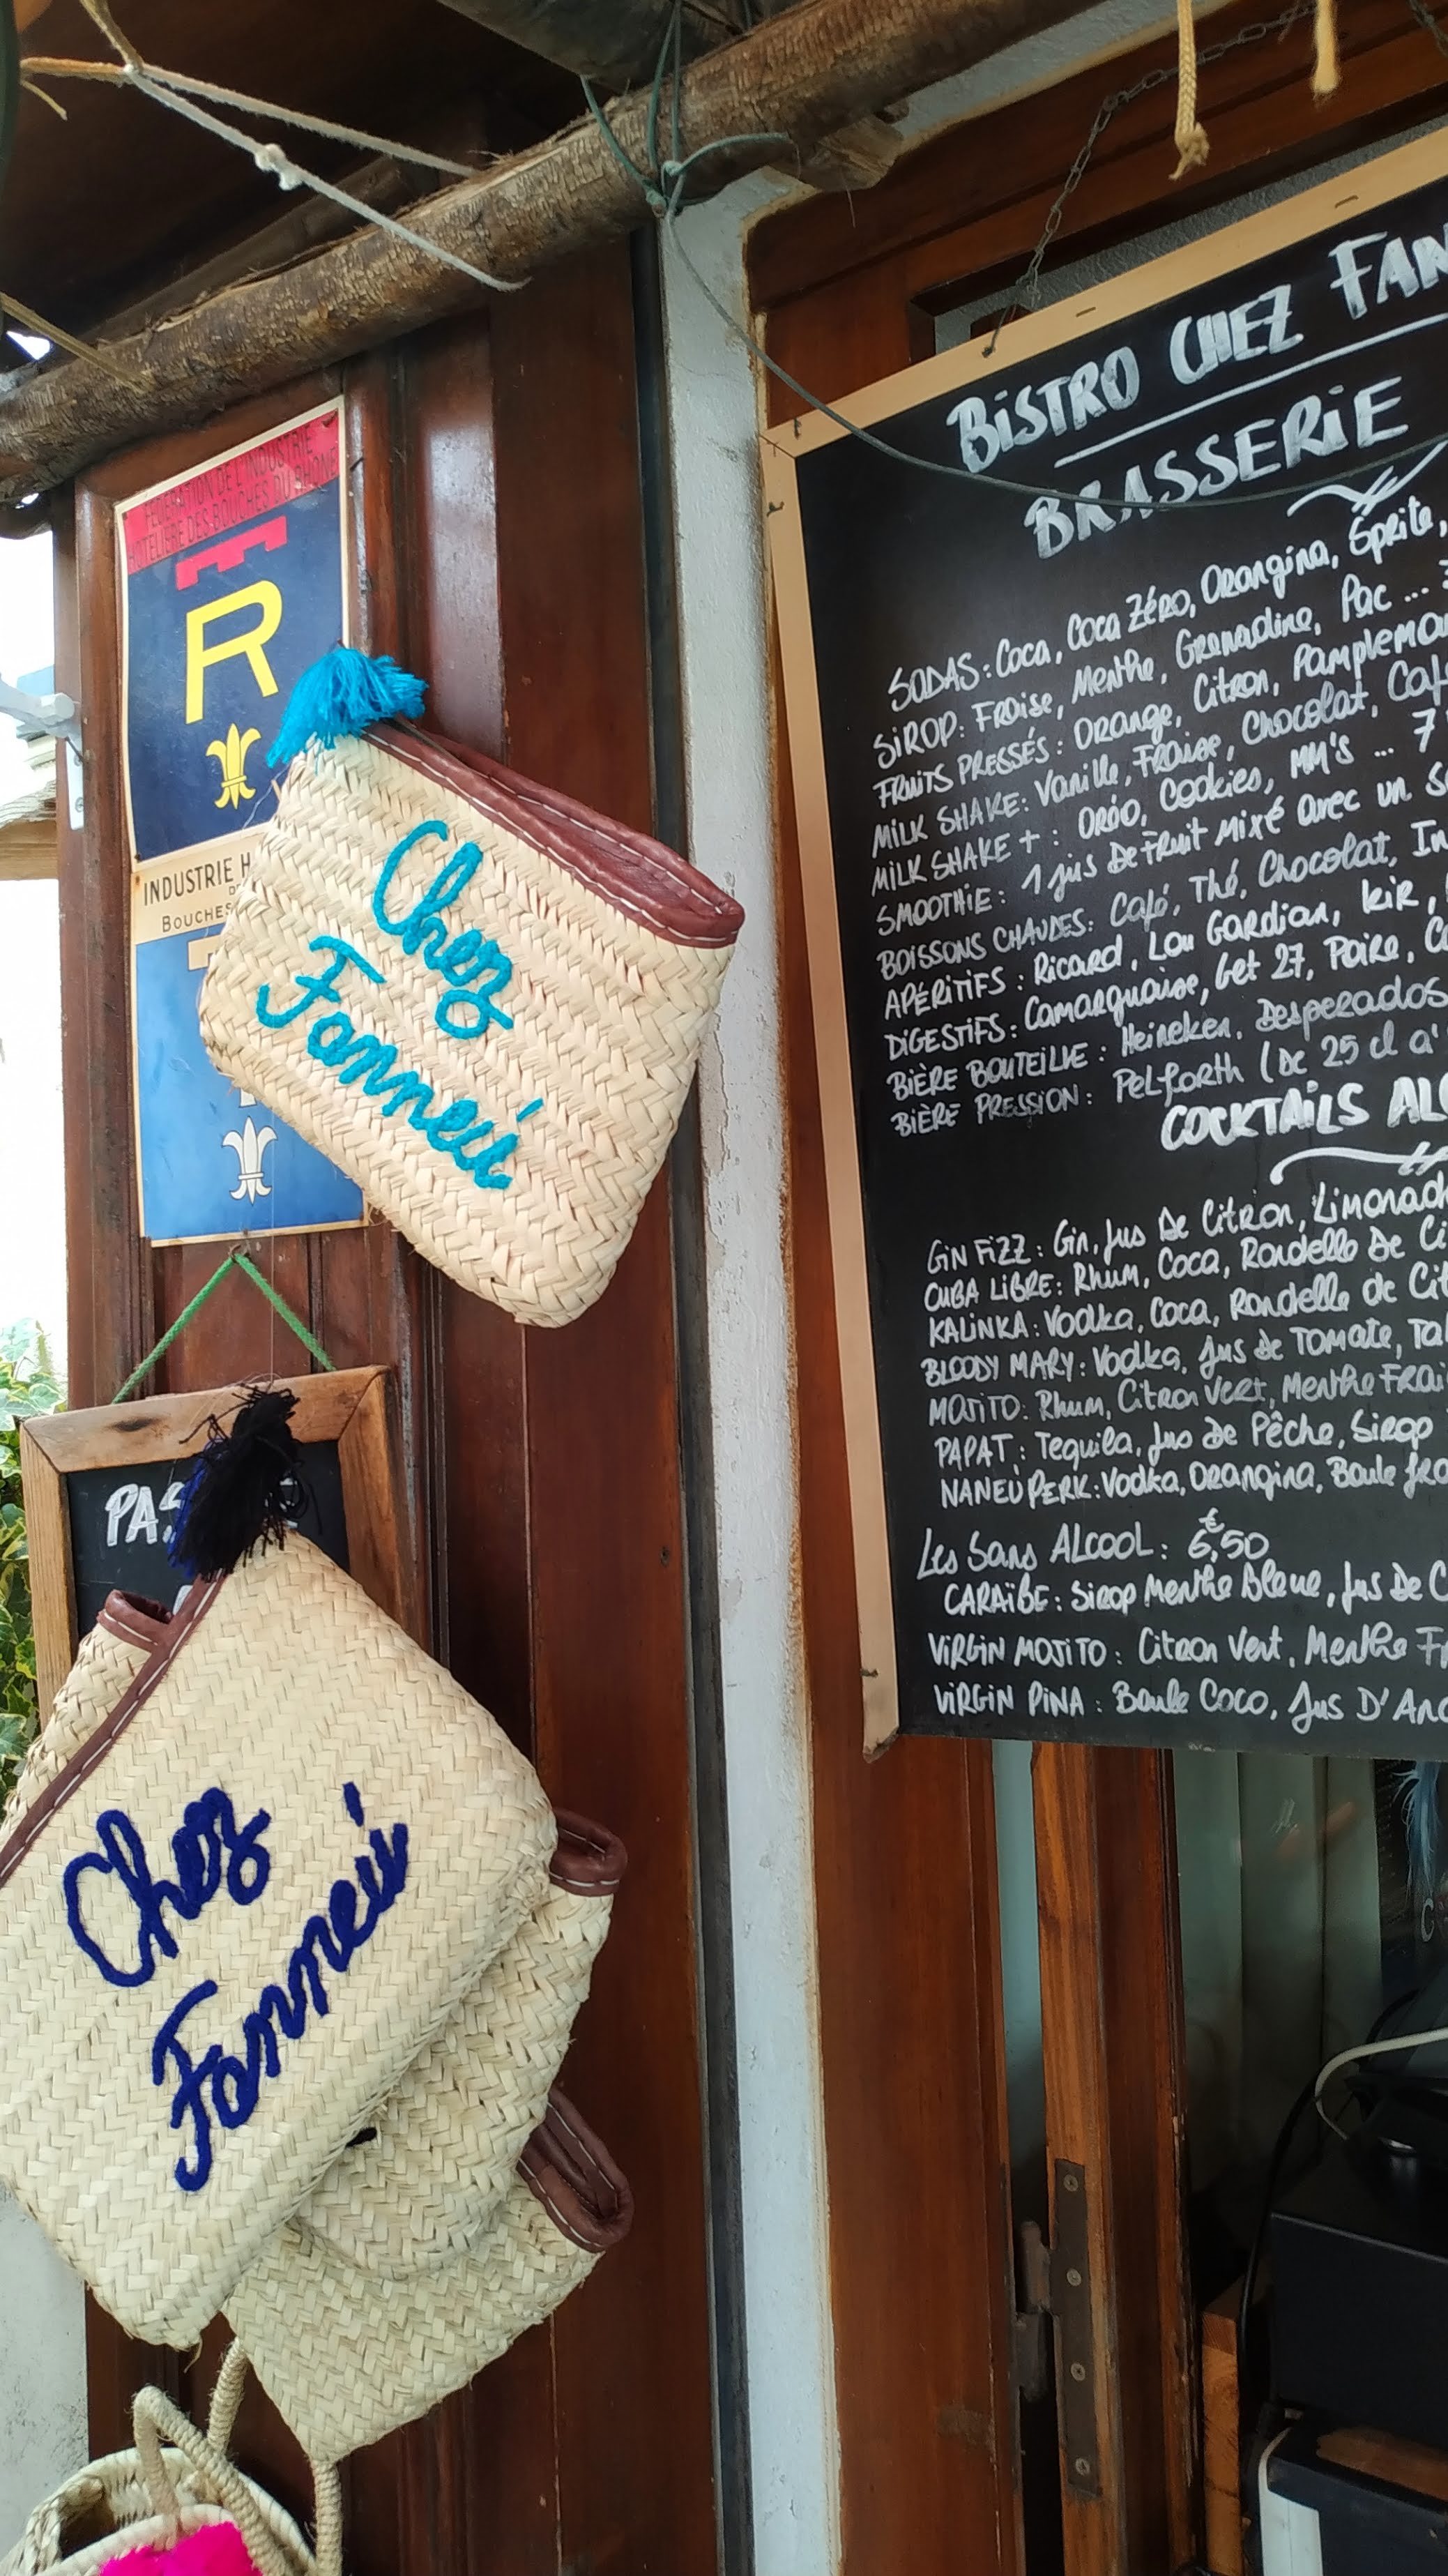 FÉDÉRATION DE L'INDUSTRIE
HÔTELIÈRE DES BOUCHES DU RHÔNE
R
INDUSTRIE H
BOUCHES
Chez
Fanneù
PAS
Chez
Fanneù
BiSTRO CHEZ FAN
BRASSERiE
SODAS: Coca, Coca Zéro, Orangina, Sprite,
SiROP: Fraise, Menthe, Grenadine, Pac ...
FRUiTS PRESSÉS: Orange, Citron, Pamplemo
MiLK SHAKE: Vanille, Fraise, Chocolat, Caf
MiLK SHAKE +: Oréo, Cookies, MM's ... 7
SMOOTHiE: 1 jus De Fruit Mixé avec un S
BOISSONS CHAUDES: Café, Thé, Chocolat, In
APÉRiTiFS: Ricard, Lou Gardian, Kir,
DiGESTiFS: Camarguaise, Get 27, Poire, C
BiÈRE BOUTEiLLE: Heineken, Desperados
BiÈRE PRESSiON: Pelforth (De 25 cl a'
COCKTAiLS AL
GiN FiZZ: Gin, Jus De Citron, Limonad
CUBA LiBRE: Rhum, Coca, Rondelle De Ci
KALiNKA: Vodka, Coca, Rondelle de Cit
BLOODY MARY: Vodka, Jus de Tomate, Ta
MOJiTO: Rhum, Citron Vert, Menthe Fraî
PAPAT: Tequila, Jus De Pêche, Sirop
NANEÙPERK: Vodka, Orangina, Boule
Les Sans ALCOOL: 6,50 €
CARAïBE: Sirop Menthe Bleue, Jus De C
ViRGiN MOJiTO: Citron Vert, Menthe Fr
ViRGiN PiNA: Boule Coco, Jus D'Ana